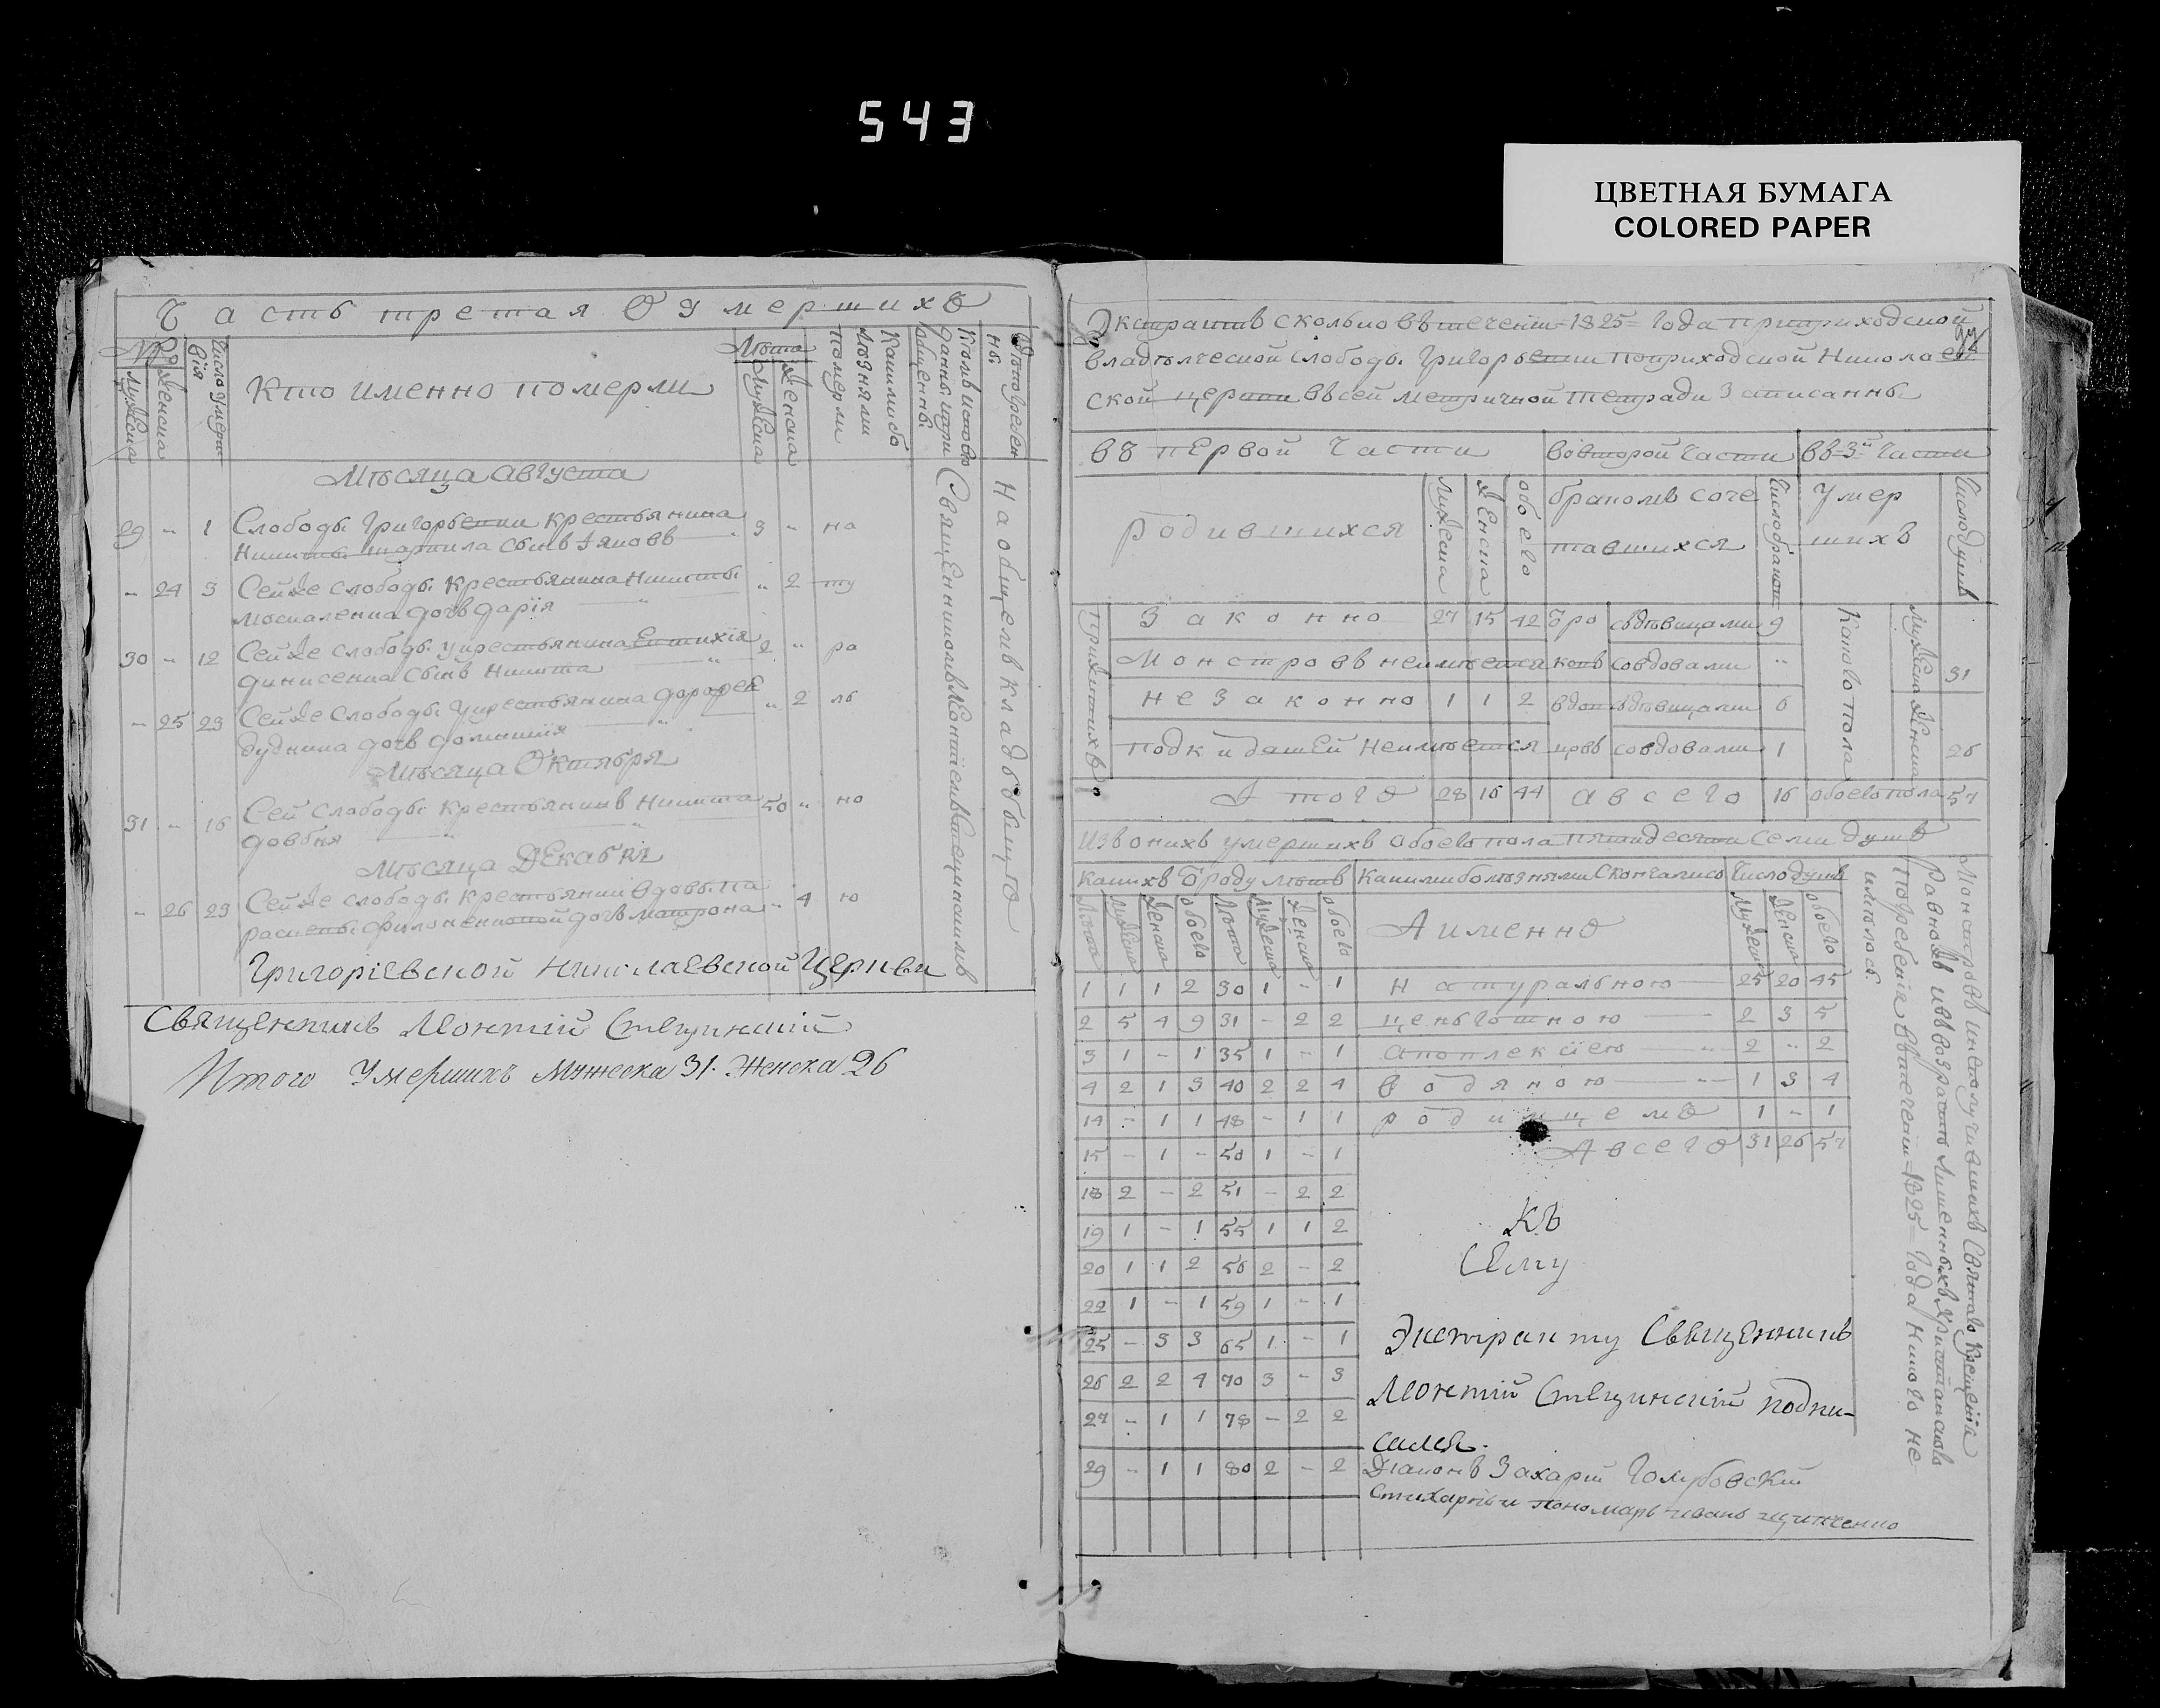 543
ЦВЕТНАЯ БУМАГА
COLORED PAPER
Часть третая О умершихъ
№
Мужеска
Женска
Число умерт
вія
Кто именно померли
Лѣта
Мужеска
Женска
померли
Мѣсяца Августа
29 - 1 Слободы Григорьевки крестьянина
Никиты сынъ Іяковъ 3 - на
- 24 3 Сейже слободы крестьянина Никиты
Москаленка дочь Дарія " 2 ту
30 - 12 Сейже слободы крестьянина Евтихія
Динисенка сынъ Никита 2 " ра
- 25 23 Сейже слободы крестьянина
Дудника дочь Домникія " 2 ль
Мѣсяца Октября
31 - 16 Сей слободы крестьянинъ Никита
Довбня 50 " но
Мѣсяца Декабря
- 26 23 Сейже слободы крестьянин
дочь Матрона " 4 ю
Священникомъ Леонтіемъ
На общемъ кладбыщѣ
Григоріевской Николаевской Церкви
Священникъ Леонтій Стецинскій
Итого Умершихъ Мужеска 31. Женска 26
Экстрактъ сколько въ теченіи =1825= года при приходской
владѣлческой слободы Григорьевки по приходской Николаев
ской церкви въ сей метричной тетради записанны
въ первой Части во второй Части въ 3й Части
родившихся
Мужеска
Женска
обоего
бракомъ соче
тавшихся
Число браков
Умер
шихъ
Число душъ
Законно 27 15 42 съ дѣвицами 9
Монстровъ неимѣется со вдовами "
незаконно 1 1 2 съ дѣвицами 6
подкидашей неимѣется со вдовами 1
Каково пола
Мужеска 31
Женска 26
Итого 28 16 44 А всего 16 обоего пола 57
Изъ онихъ умершихъ обоего пола пятидесяти семи душъ
Какихъ Ѿроду лѣтъ Какими болѣзнями скончались Число душъ
Лѣта Мужеска Женска обоего Лѣта Мужеска Женска обоего Аименно Мужеска Женска обоего
1 1 1 2 30 1 - 1 Натуральною 25 20 45
2 5 4 9 31 - 2 2 ценьготною 2 3 5
3 1 - 1 35 1 - 1 апоплексіею 2 " 2
4 2 1 3 40 2 2 4 водяною 1 3 4
14 - 1 1 48 - 1 1 родимцемъ 1 - 1
15 - 1 - 50 1 - 1 А всего 31 26 57
18 2 - 2 51 - 2 2
19 1 - 1 55 1 1 2
20 1 1 2 56 2 - 2
22 1 - 1 59 1 - 1
25 - 3 3 65 1 - 1
26 2 2 4 70 3 - 3
27 - 1 1 78 - 2 2
29 - 1 1 80 2 - 2
Къ
Сему
Экстракту Священникъ
Леонтій Стецинскій подпи-
сался.
Діаконъ Захарій Голубовскій
Стихарный пономарь Иванъ
Монстровъ и неполучившихъ Святаго Крещенія
Равножъ и въ возрастѣ лишенныхъ Христіанскаго
Погребенія въ теченіи =1825= Года Никого не
имѣлось.